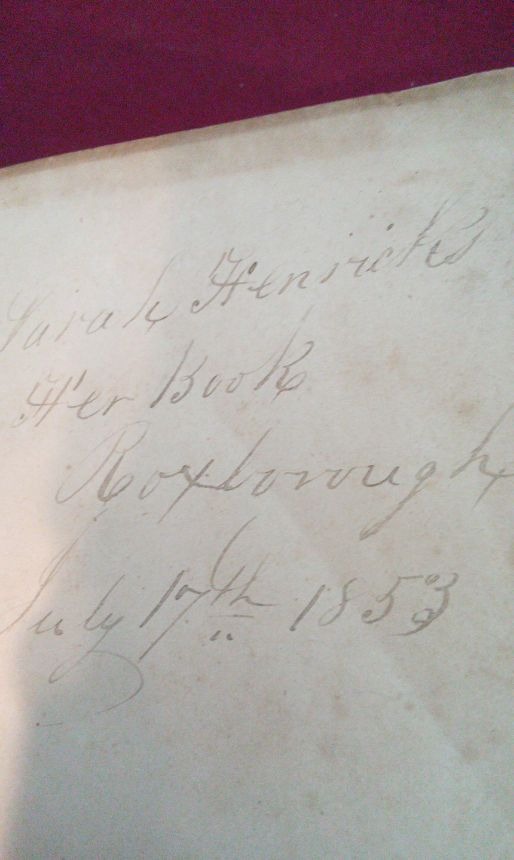 Sarah Henricks
Her Book
Roxborough
July 17th 1853